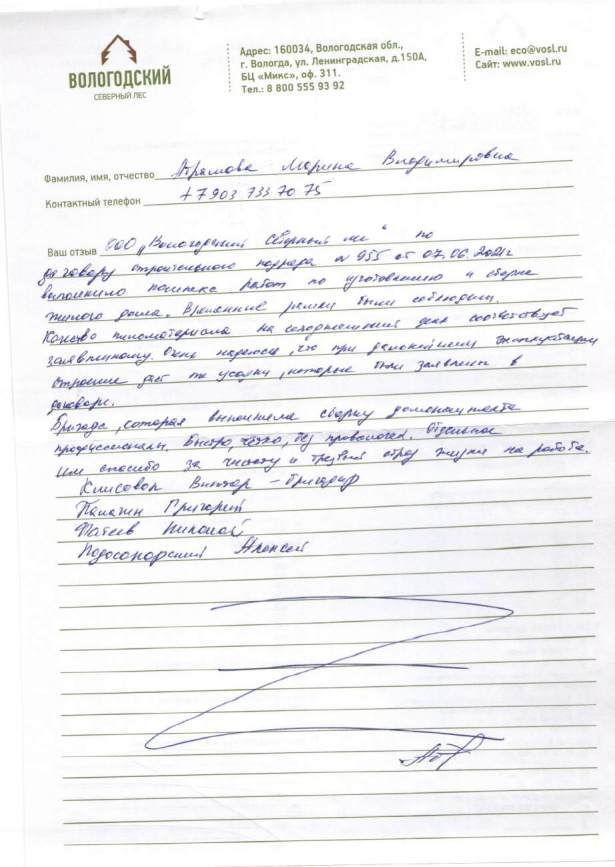 ВОЛОГОДСКИЙ
СЕВЕРНЫЙ ЛЕС
Адрес: 160034, Вологодская обл.,
г. Вологда, ул. Ленинградская, д.150А,
БЦ «Микс», оф. 311.
Тел.: 8 800 555 93 92
E-mail: eco@vosl.ru
Сайт: www.vosl.ru
Фамилия, имя, отчество Марина Владимировна
Контактный телефон +7 903 733 70 75
Ваш отзыв ООО „Вологодский Северный лес" по
договору строительного подряда № 955 от 07.06.2021г
выполнило комплекс работ по изготовлению и сборке
жилого дома. Временные рамки были соблюдены.
Качество пиломатериала на сегодняшний день соответствует
заявленному. Очень надеюсь, что при дальнейшем эксплуатации
строение даст те усадки, которые были заявлены в
договоре.
Бригада, которая выполняла сборку домокомплекта
профессионалы. Быстро, четко, без проволочек. Отдельное
им спасибо за чистоту и трезвый образ жизни на работе.
Виктор - бригадир
Григорий
Николай
Алексей